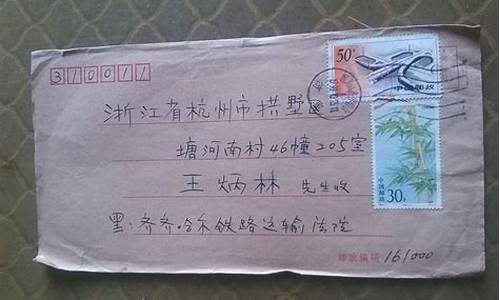 310011
50分
中国邮政
浙江省杭州市拱墅区
塘河南村46幢205室
中国邮政
30分
王炳林 先生收
黑:齐齐哈尔铁路运输法院
邮政编码 161000